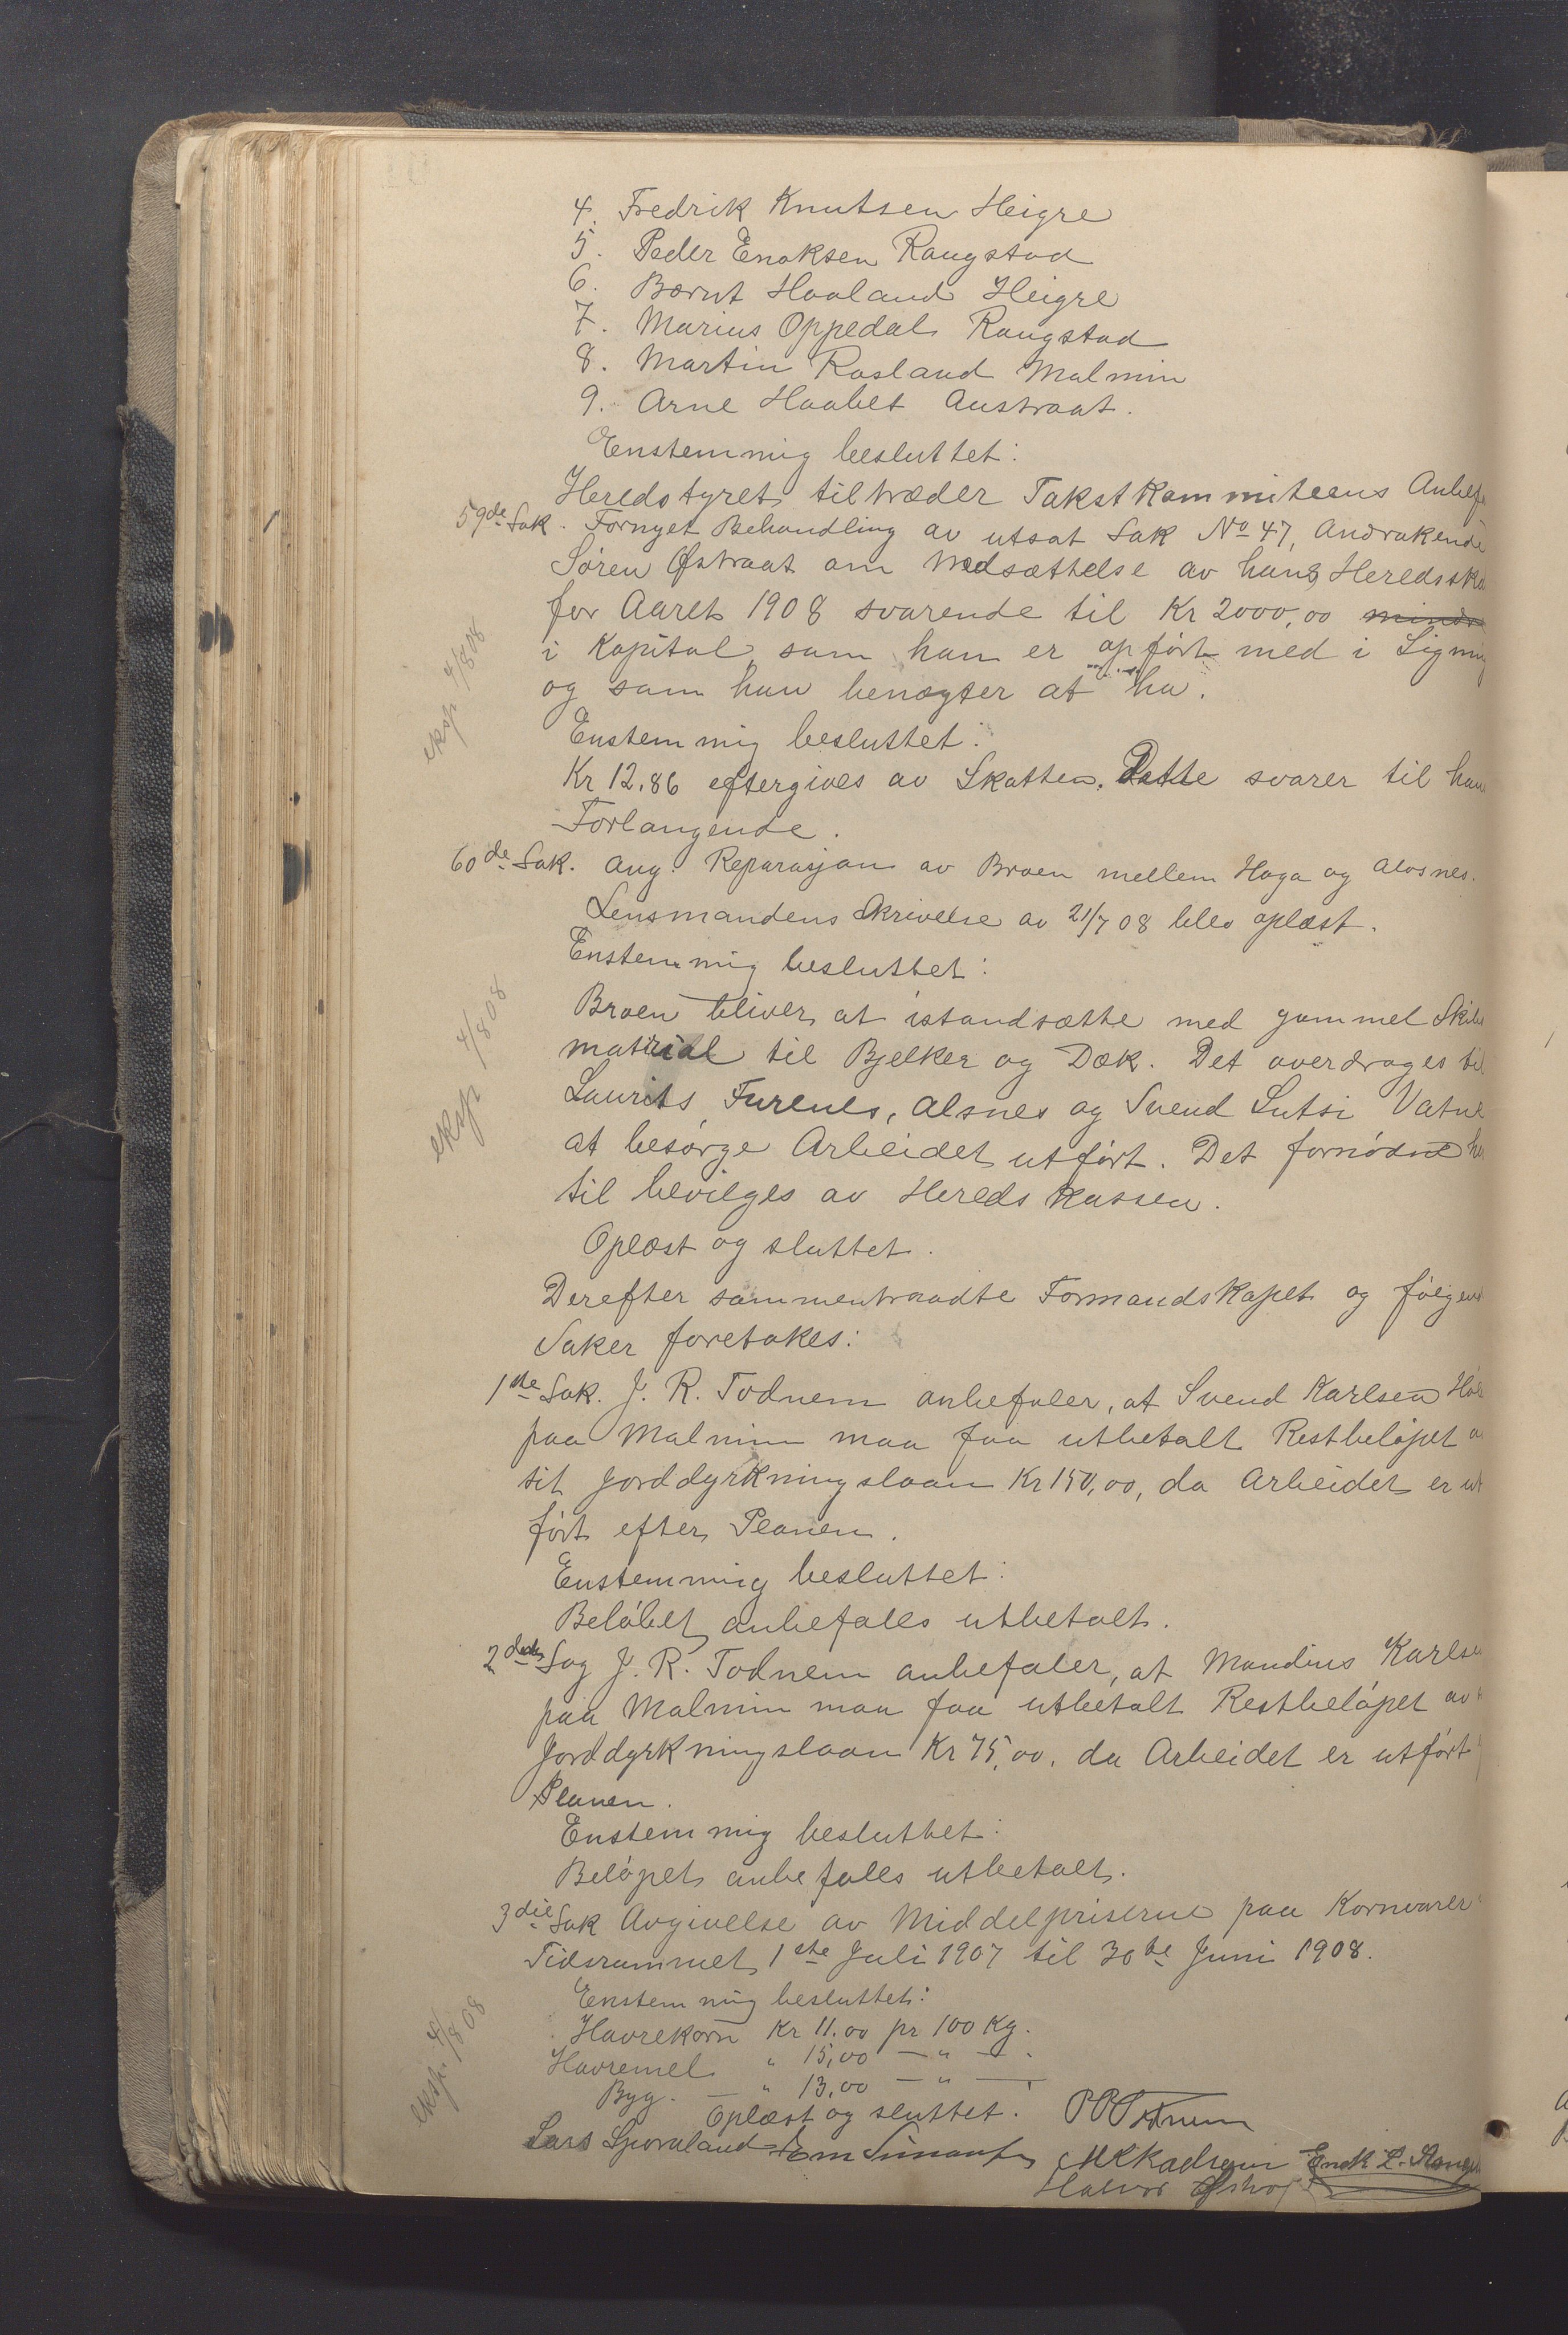 4. Fredrik Knutsen Heigre
5. Peder Enoksen Raugstad
6. Bernt Haaland Heigre
7. Marius Oppedal Raugstad
8. Martin Rosland Malmin
9. Arne Haabet Austraat.
Enstemmig besluttet:
Heredstyret tiltræder Takstkommiteens Anbef
59de Sak. Fornyet Behandling av utsat Sak No 47, Andrakende
Søren Østraat om Nedsættelse av hans Heredsska
for Aaret 1908 svarende til Kr 2000,00 mindre
i Kapital, som han er opført med i Ligning
og som han benægter at ha.
eksp 4/8 08
Enstemmig besluttet:
Kr 12.86 eftergives av Skatten. Dette svarer til han
Forlangende.
60de Sak. Ang. Reparasjon av Broen mellem Hoga og Alsnes.
Lensmandens Skrivelse av 21/7 08 blev oplæst.
Enstemmig besluttet:
Broen bliver at istandsætte med gammel Skibs
material til Bjelker og Dæk. Det overdrages til
Laurits Furenes, Alsnes og Svend Lutsi Vatne
at besørge Arbeidet utført. Det fornødne her
til bevilges av Heredskassen.
eksp 4/8 08
Oplæst og sluttet.
Derefter sammentraadte Formandskapet og følgend
Saker foretokes:
1ste Sak. J. R. Todnem anbefaler, at Svend Karlsen
paa Malmin maa faa utbetalt Restbeløpet a
sit Jorddyrkningslaan Kr 150,00, da Arbeidet er ut
ført efter Planen.
Enstemmig besluttet:
Beløbet anbefales utbetalt.
2den Sag J. R. Todnem anbefaler, at Mandius Karlsen
paa Malmin maa faa utbetalt Restbeløpet av
Jorddyrkningslaan Kr 75,00, da Arbeidet er utført
Planen.
Enstemmig besluttet:
Beløpet anbefales utbetalt.
3die Sak Avgivelse av Middelpriserne paa Kornvarer
Tidsrummet 1ste Juli 1907 til 30te Juni 1908.
Enstemmig besluttet:
Havrekorn Kr 11.00 pr 100 Kg.
Havremel " 15,00 — " — .
Byg. — " 13,00 — " — .
eksp. 4/8 08
Oplæst og sluttet.
Lars Sporaland